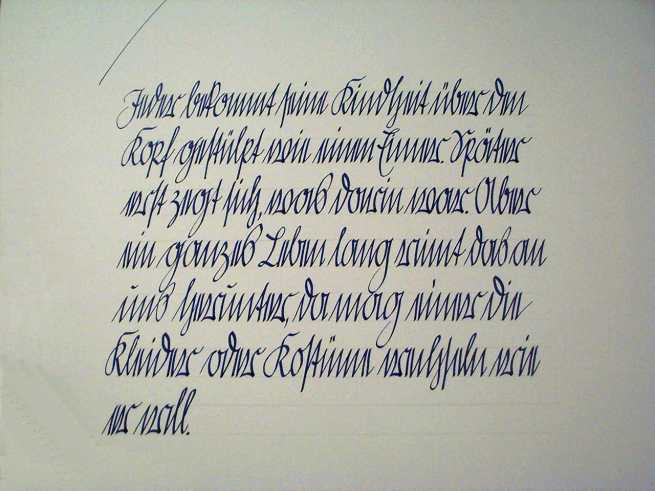 Jeder bekommt seine Kindheit über den
Kopf gestülpt wie einen Eimer. Später
erst zegt sich, was darin war. Aber
ein ganzes Leben lang rinnt das an
uns herunter, da mag einer die
Kleider oder Kostüme wechseln wie
er will.